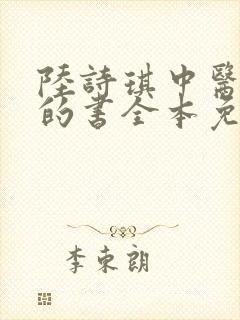 陸詩琪中醫
的書全本免
李東朗